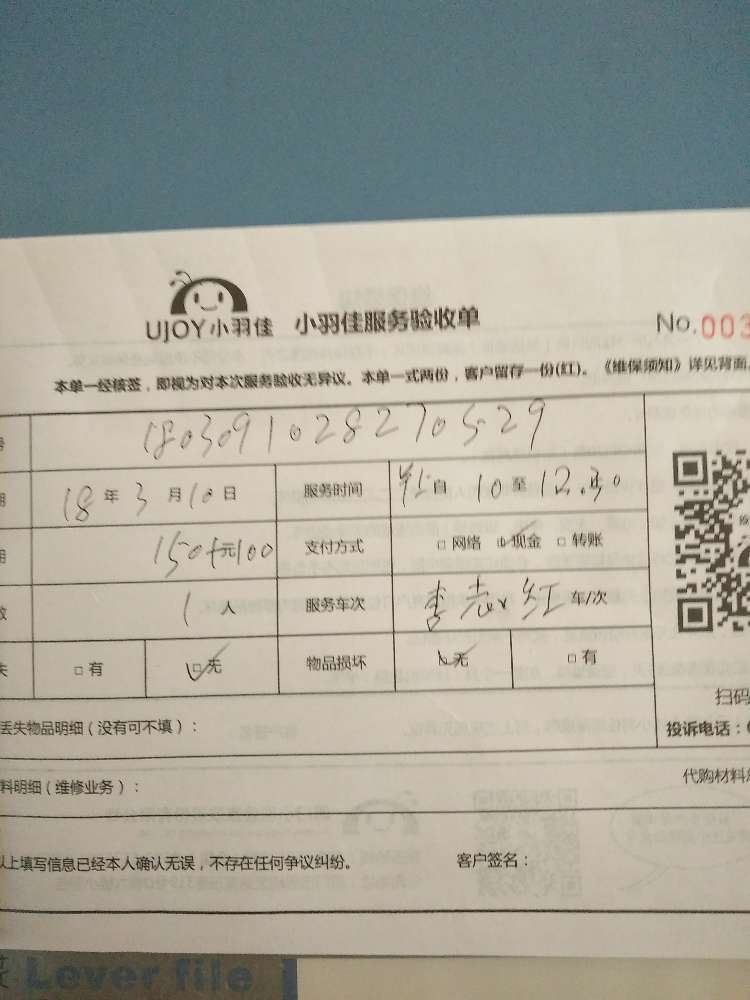 UJOY小羽佳 小羽佳服务验收单 No.003
本单一经核签，即视为对本次服务验收无异议。本单一式两份，客户留存一份(红)。《维保须知》详见背面。
号 1803091028270529
期 18年3月10日 服务时间 自10至12.30
用 150+元100 支付方式 □网络 □现金 □转账
数 1人 服务车次 李志红 车/次
失 □有 □无 物品损坏 无 □有
扫码
丢失物品明细（没有可不填）： 投诉电话：0
料明细（维修业务）： 代购材料
以上填写信息已经本人确认无误，不存在任何争议纠纷。 客户签名：
Lever file